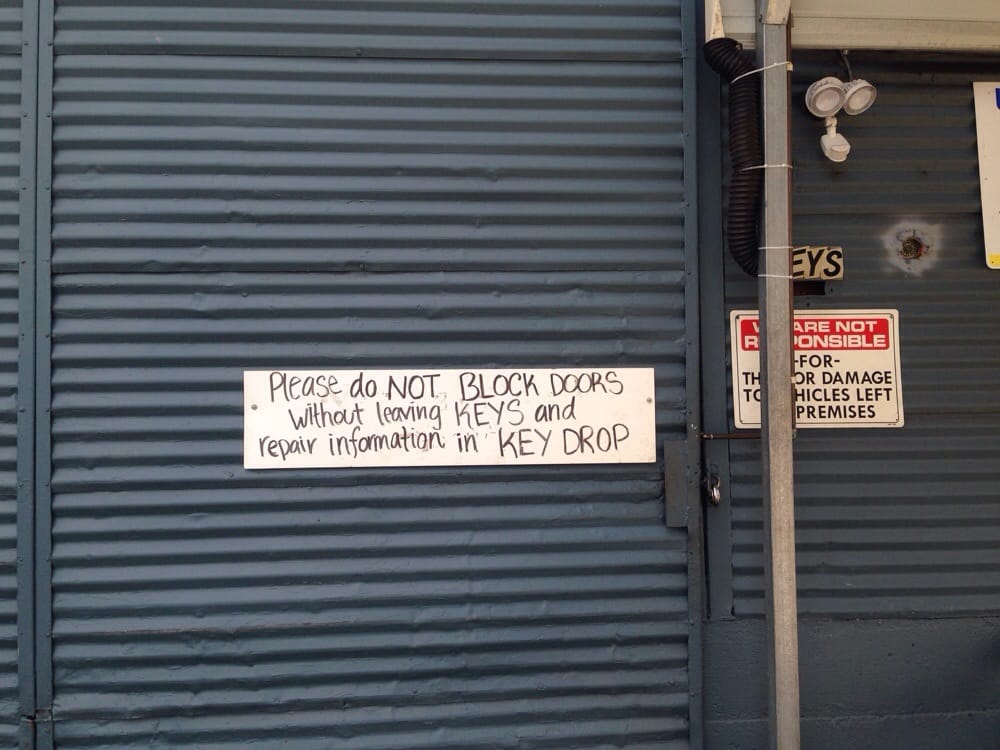 Please do NOT BLOCK DOORS
without leaving KEYS and
repair information in KEY DROP
EYS
W ARE NOT
R PONSIBLE
-FOR-
TH OR DAMAGE
TO HICLES LEFT
PREMISES